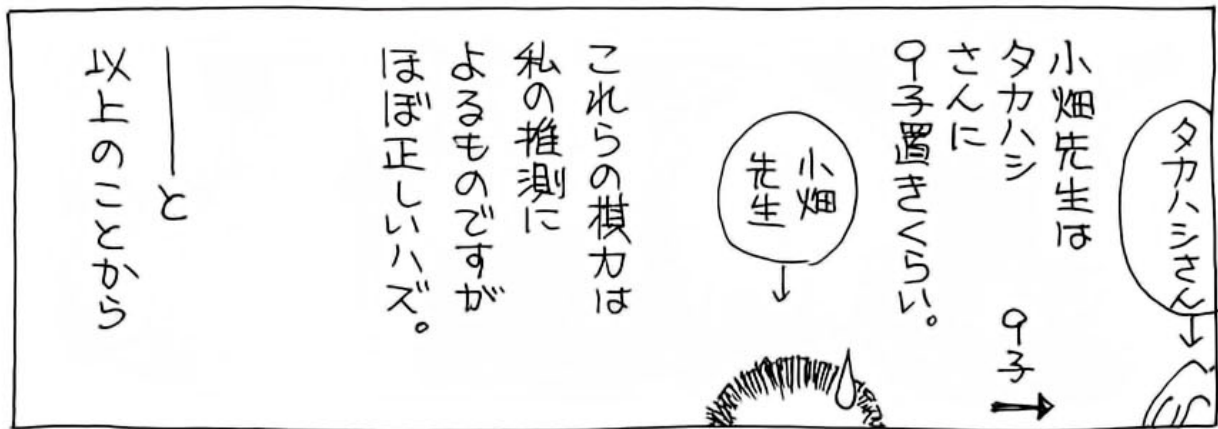 タカハシさん
小畑先生は
タカハシ
さんに
9子置きくらい。
9子
小畑
先生
これらの棋力は
私の推測に
よるものですが
ほぼ正しいハズ。
──と
以上のことから